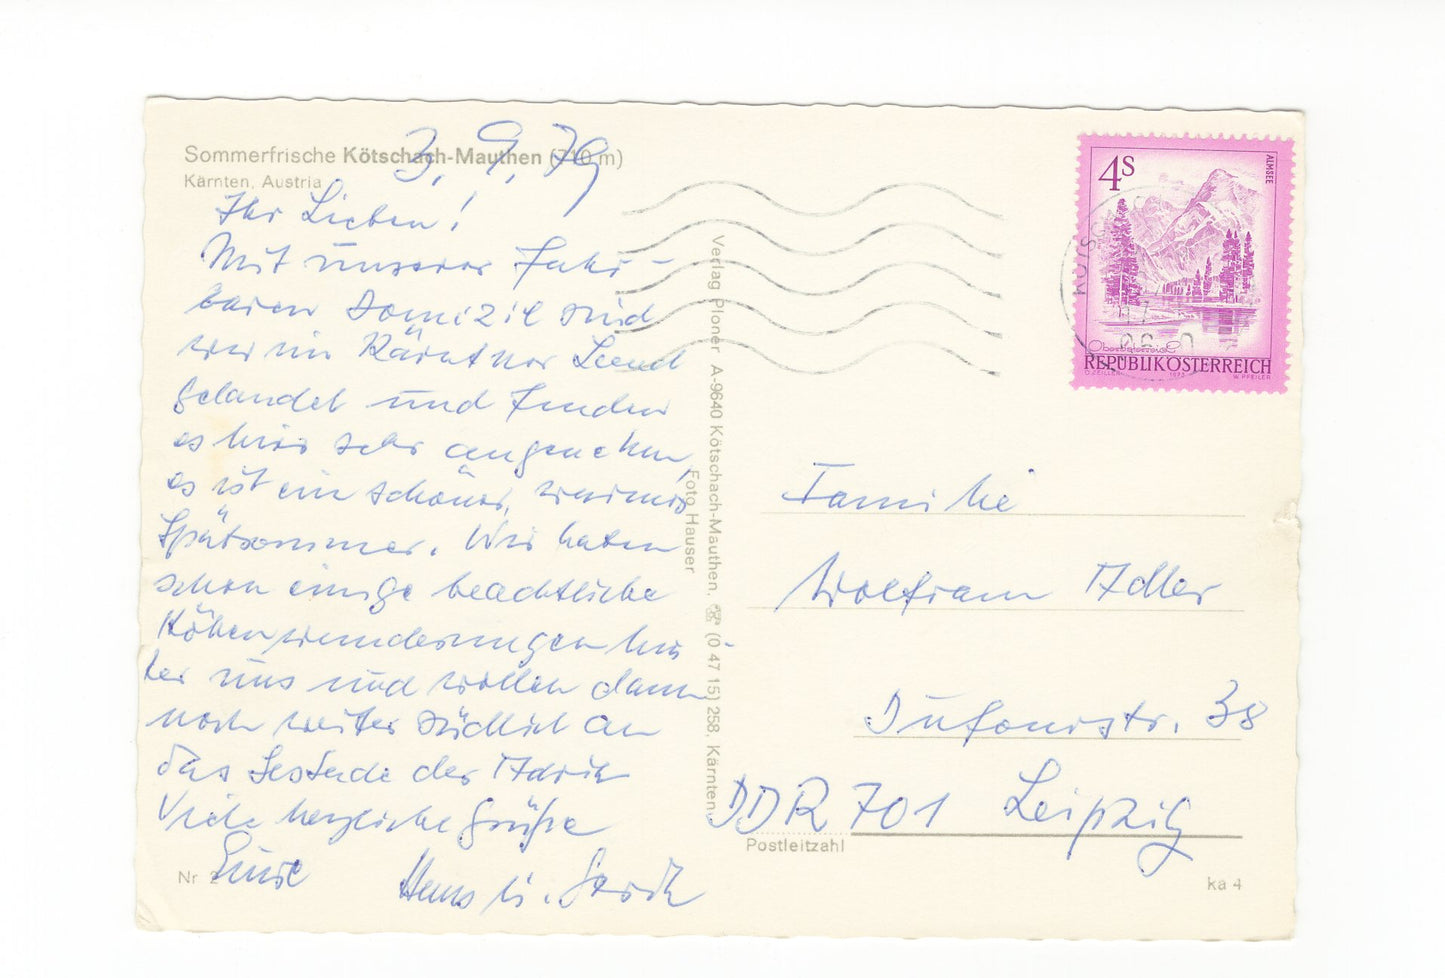 Sommerfrische Kötschach-Mauthen (710 m)
Kärnten, Austria
3. 9. 79
Ihr Lieben!
Mit unserer Fahr-
baren Domizil sind
wir im Kärntner Land
gelandet und finden
es hier sehr angenehm,
es ist ein schöner, warmer
Spätsommer. Wir haben
schon einige beachtliche
Höhenwanderungen hin-
ter uns und wollen dann
noch weiter südlich an
das Gestade der Adria
Viele herzliche Grüße
Eure
Hans u.
Nr 2
Verlag Ploner A-9640 Kötschach-Mauthen. ☏ (0 47 15) 258. Kärnten.
Foto Hauser
4S
ALMSEE
Oberösterreich
REPUBLIK ÖSTERREICH
O. ZEILLER 1973 W. PFEILER
Familie
Wolfram Adler
Dufourstr. 38
DDR 701 Leipzig
Postleitzahl
ka 4